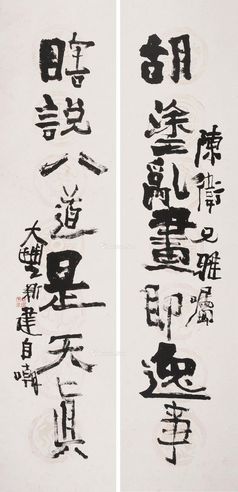 胡塗亂畫即逸事
陳衛兄雅囑
瞎說八道是天真
大豐新建自嘲